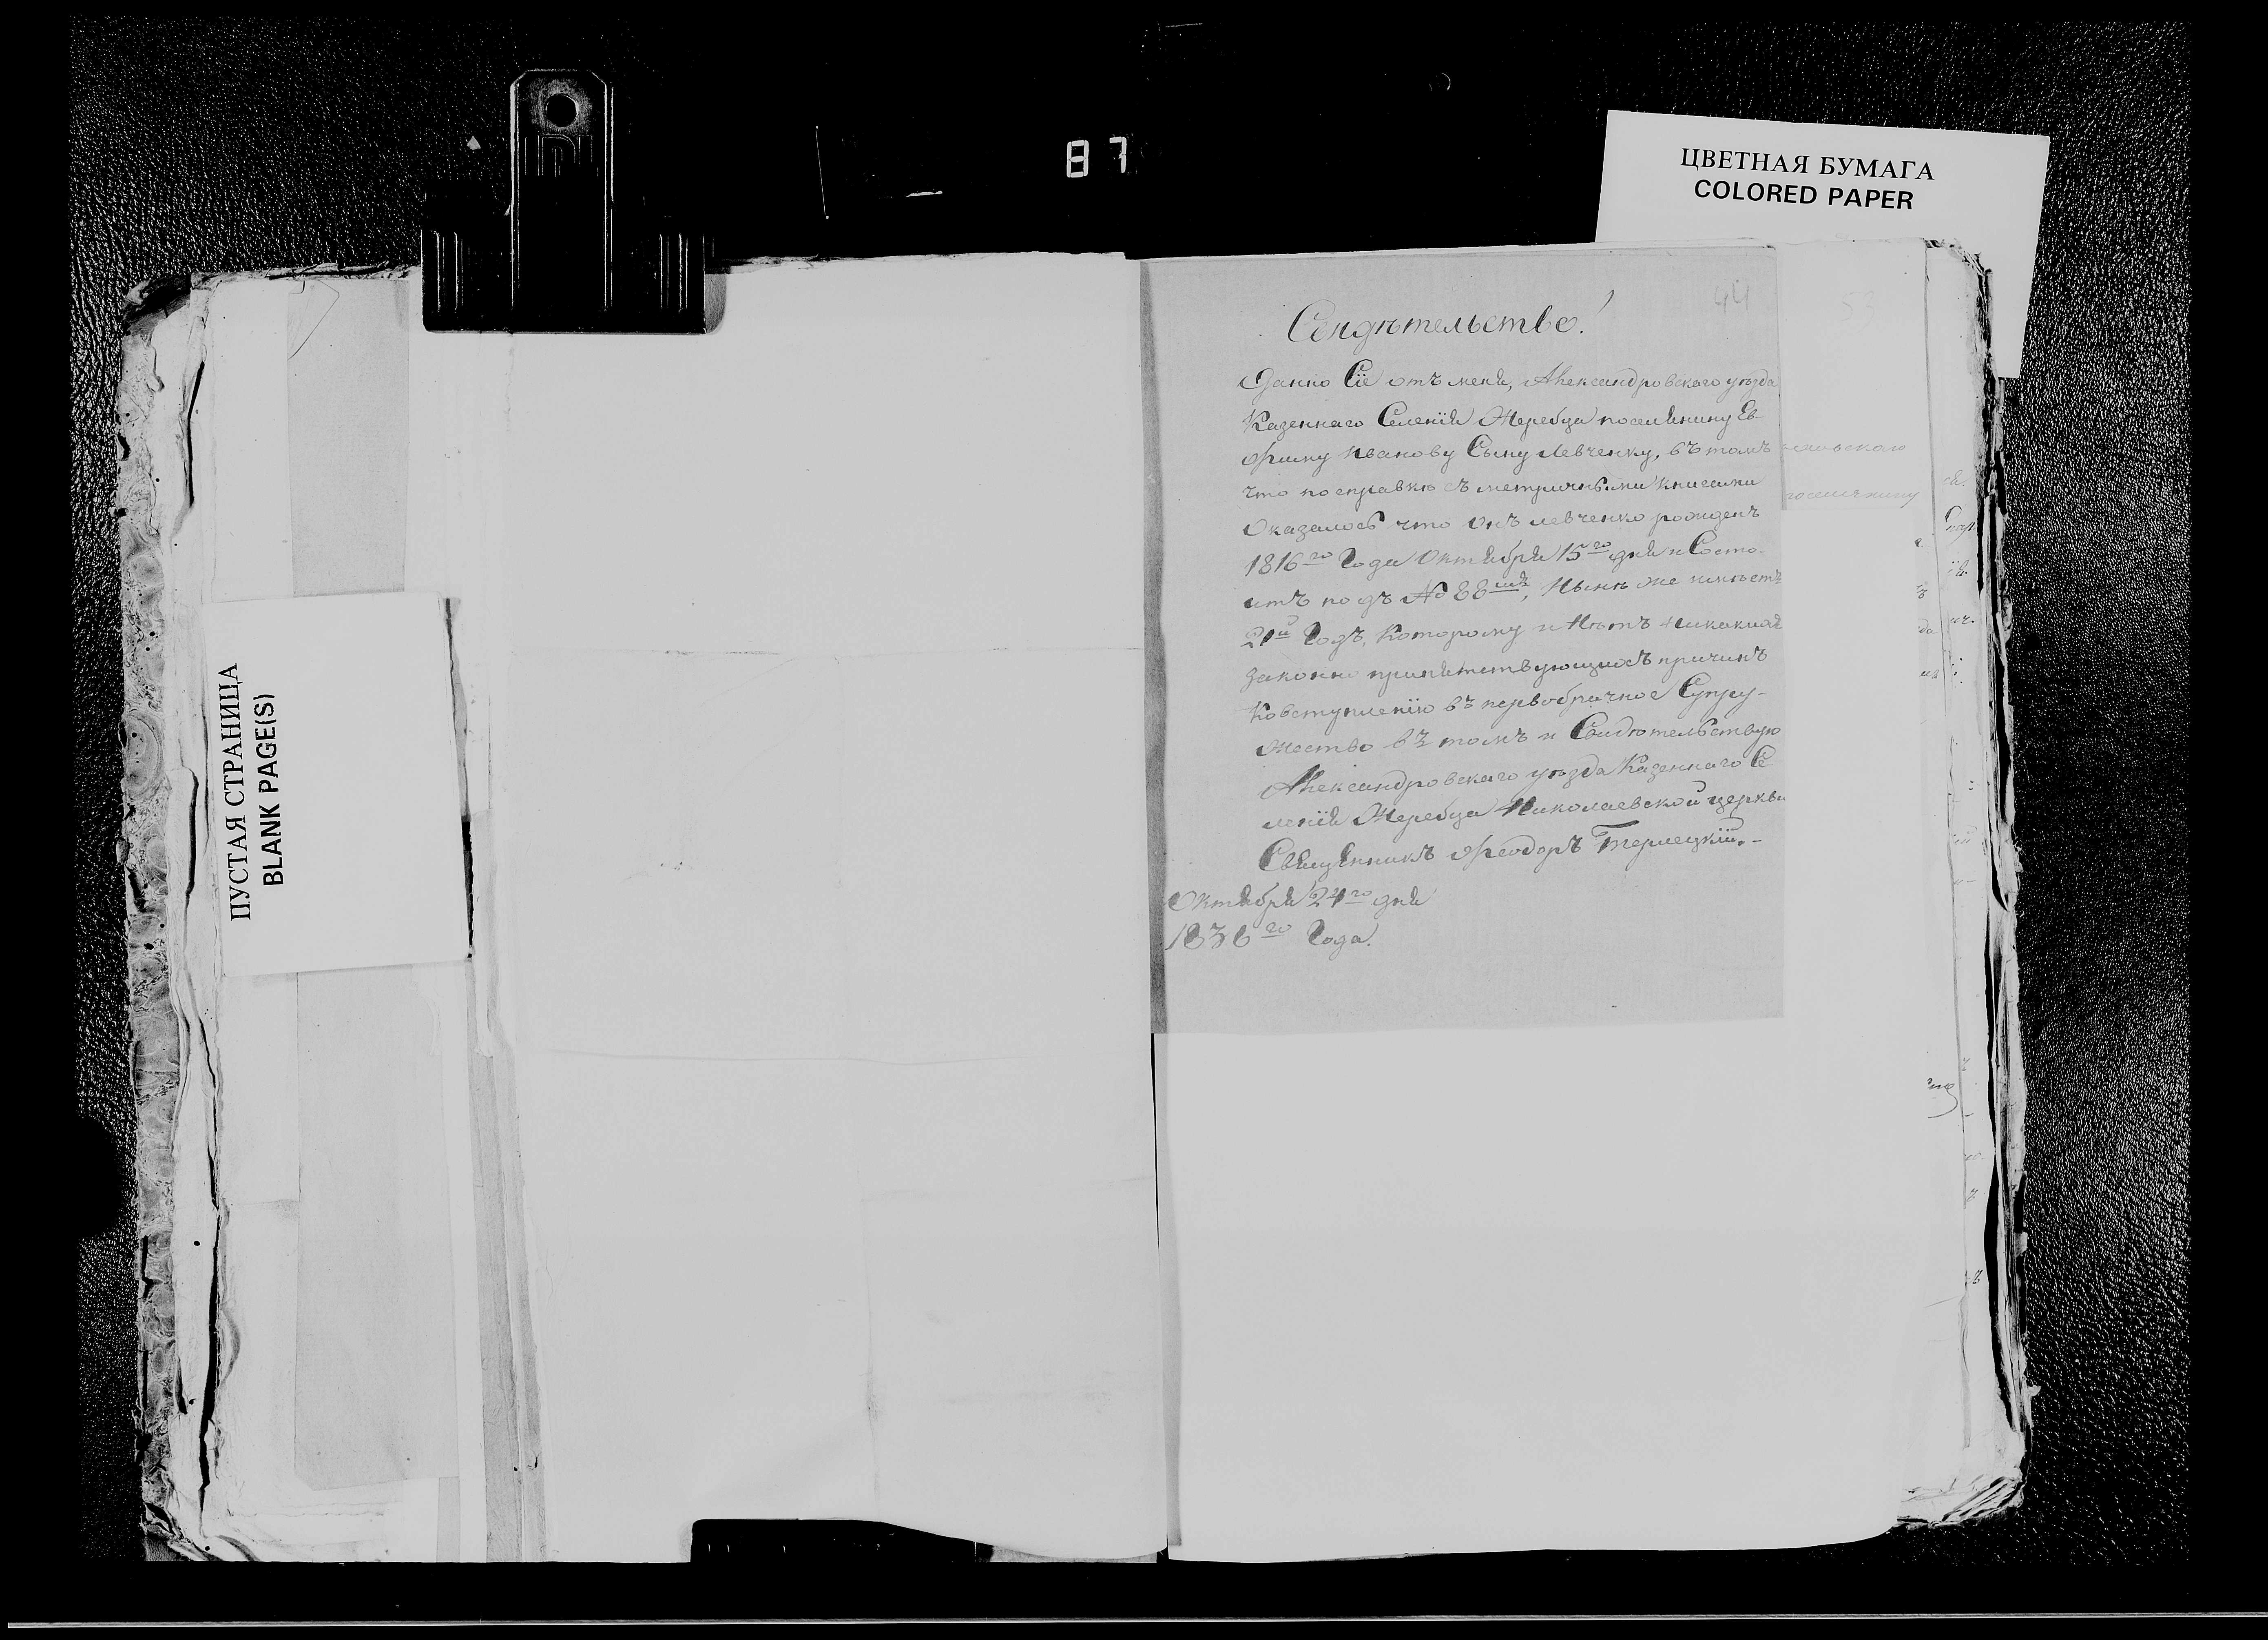 87
ЦВЕТНАЯ БУМАГА
COLORED PAPER
ПУСТАЯ СТРАНИЦА
BLANK PAGE(S)
44
53
Свидѣтельство!
Данно Сіе отъ меня, Александровскаго уѣзда
Казеннаго Селенія Жеребца поселянину Ев-
фиму Иванову Сыну Левченку, въ томъ
что посправкѣ съ метричными книгами
Оказалось что Онъ левченко рожденъ
1816го Года Октября 15го дня и Состо-
итъ подъ № 88мъ, Нынѣ же имѣетъ
21й Годъ, Которому и Нѣтъ Никакихъ
законно препятствующихъ причинъ
Ковступленію въ первобрачное Супру-
жество въ томъ и Свидѣтельствую
Александровскаго уѣзда Казеннаго Се
ленія Жеребца Николаевской церкви
Священникъ Феодоръ Терлецкій.-
Октября 24го дня
1836го Года.
поселянину